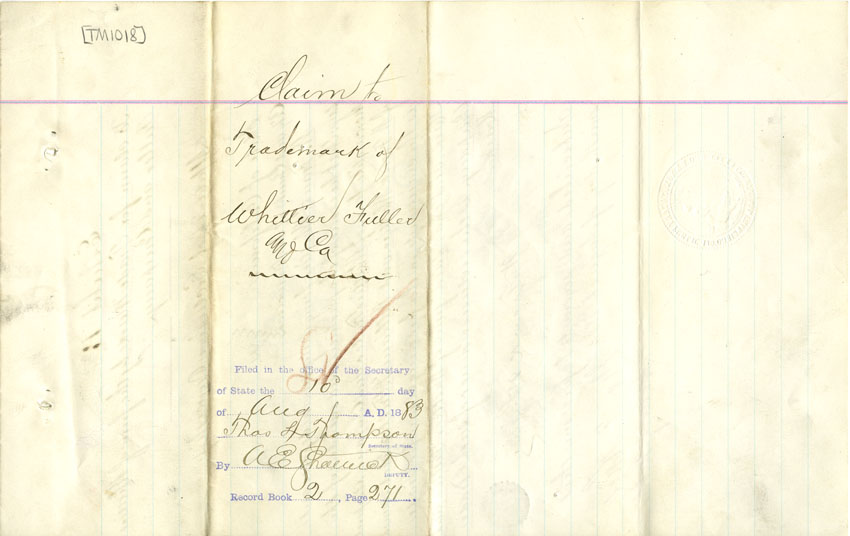 [TM1018]
Claim to
Trademark of
Whittier Fuller
and Co
Filed in the office of the Secretary
of State the 10 day
of Aug A. D. 1883
Thos H Thompson
Secretary of State.
By A E
DEPUTY.
Record Book 2, Page 271.